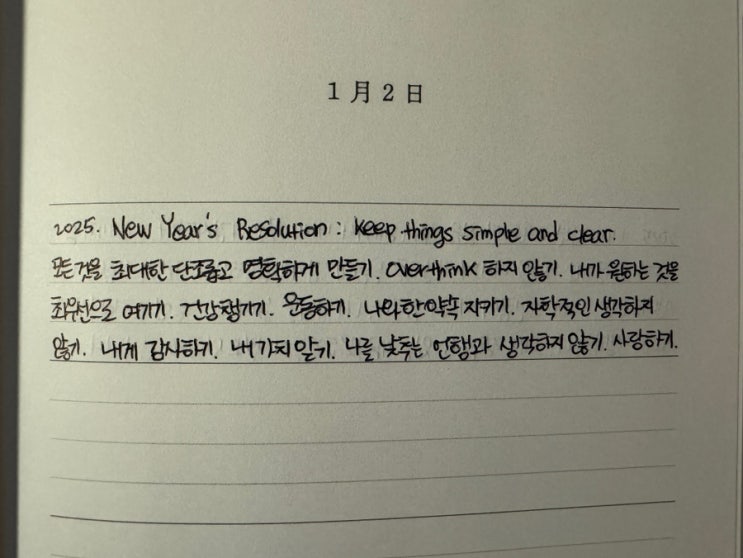 1月2日
2025. New Year's Resolution : Keep things simple and clear.
모든것을 최대한 단조롭고 명확하게 만들기. Overthink 하지 않기. 내가 원하는 것을
최우선으로 여기기. 건강챙기기. 운동하기. 나와한약속 지키기. 자학적인 생각하지
않기. 내게 감사하기. 내 가치 알기. 나를 낮추는 언행과 생각하지 않기. 사랑하기.